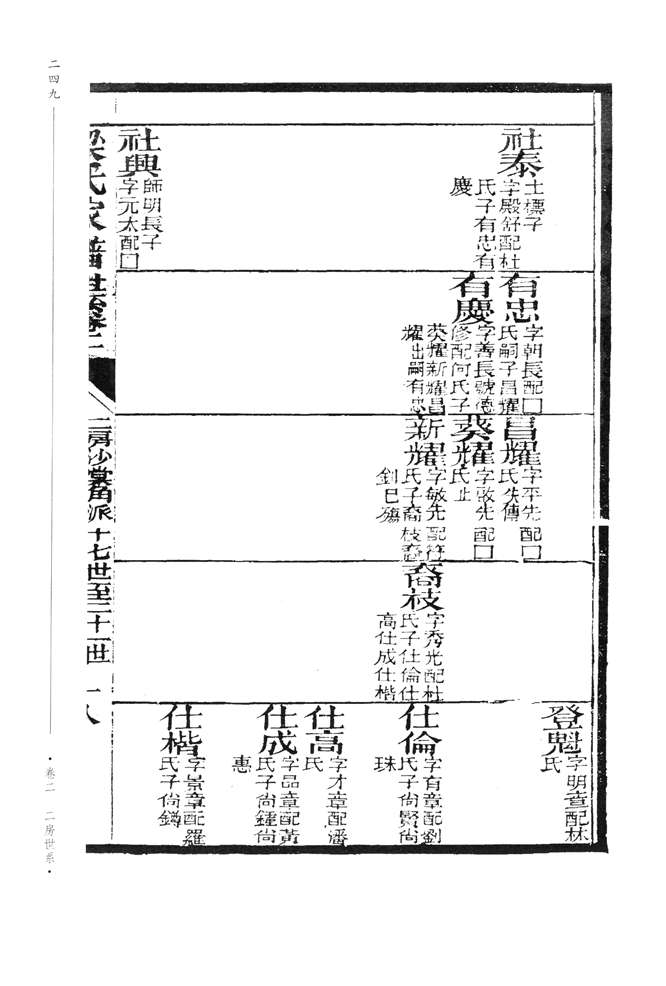 二四九
社泰
士標子
字殿舒配杜
氏子有忠有
慶
社興
師明長子
字元太配□
有忠
字朝長配□
氏嗣子昌耀
有慶
字善長號德
修配何氏子
葵耀新耀昌
耀出嗣有忠
昌耀
字平先配□
氏失傳
葵耀
字敬先配□
氏止
新耀
字敏先配符
氏子裔枝裔
釗巳殤
裔枝
字秀光配杜
氏子仕倫仕
高仕成仕楷
登魁
字明章配林
氏
仕倫
字有章配劉
氏子尚賢尚
珠
仕高
字才章配潘
氏
仕成
字品章配黃
氏子尚鍾尚
惠
仕楷
字景章配羅
氏子尚鑄
梁氏家譜世系卷二
二房沙棠角派十七世至二十一世
十八
·卷二 二房世系·